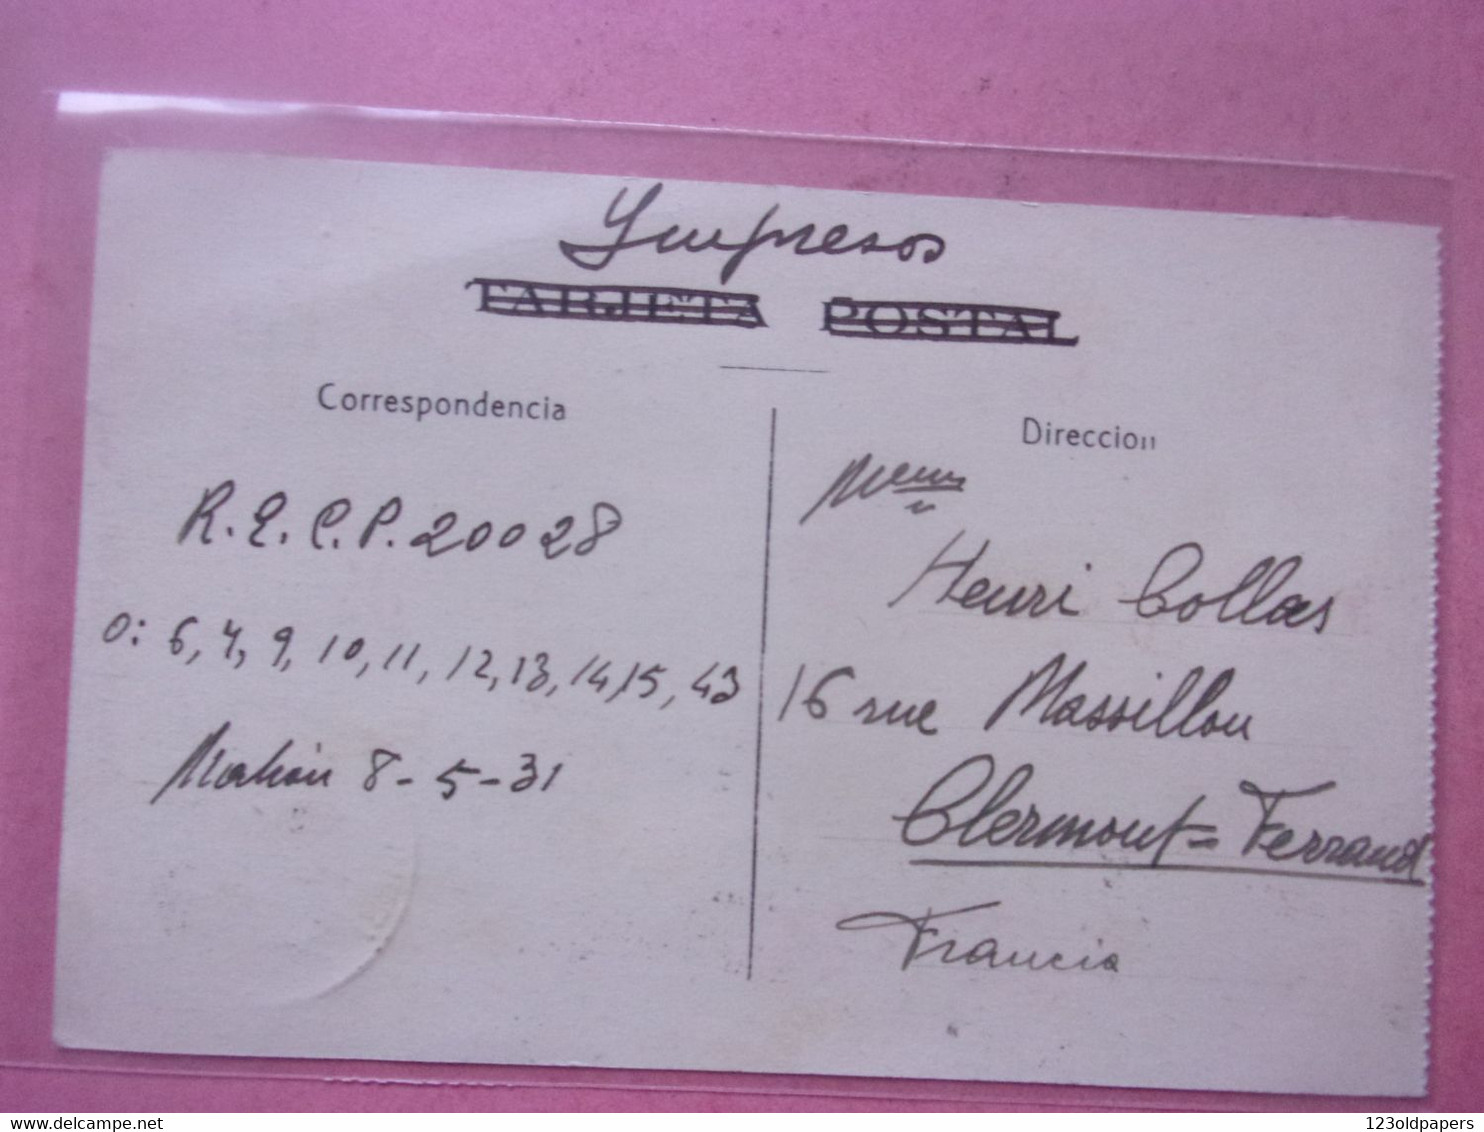 Impresos
TARJETA POSTAL
Correspondencia
R.E.C.P. 20028
O: 6, 7, 9, 10, 11, 12, 13, 14, 15, 43
Mahón 8-5-31
Direccion
Henri Collas
16 rue Massillon
Clermont-Ferrand
Francia
www.delcampe.net
123oldpapers